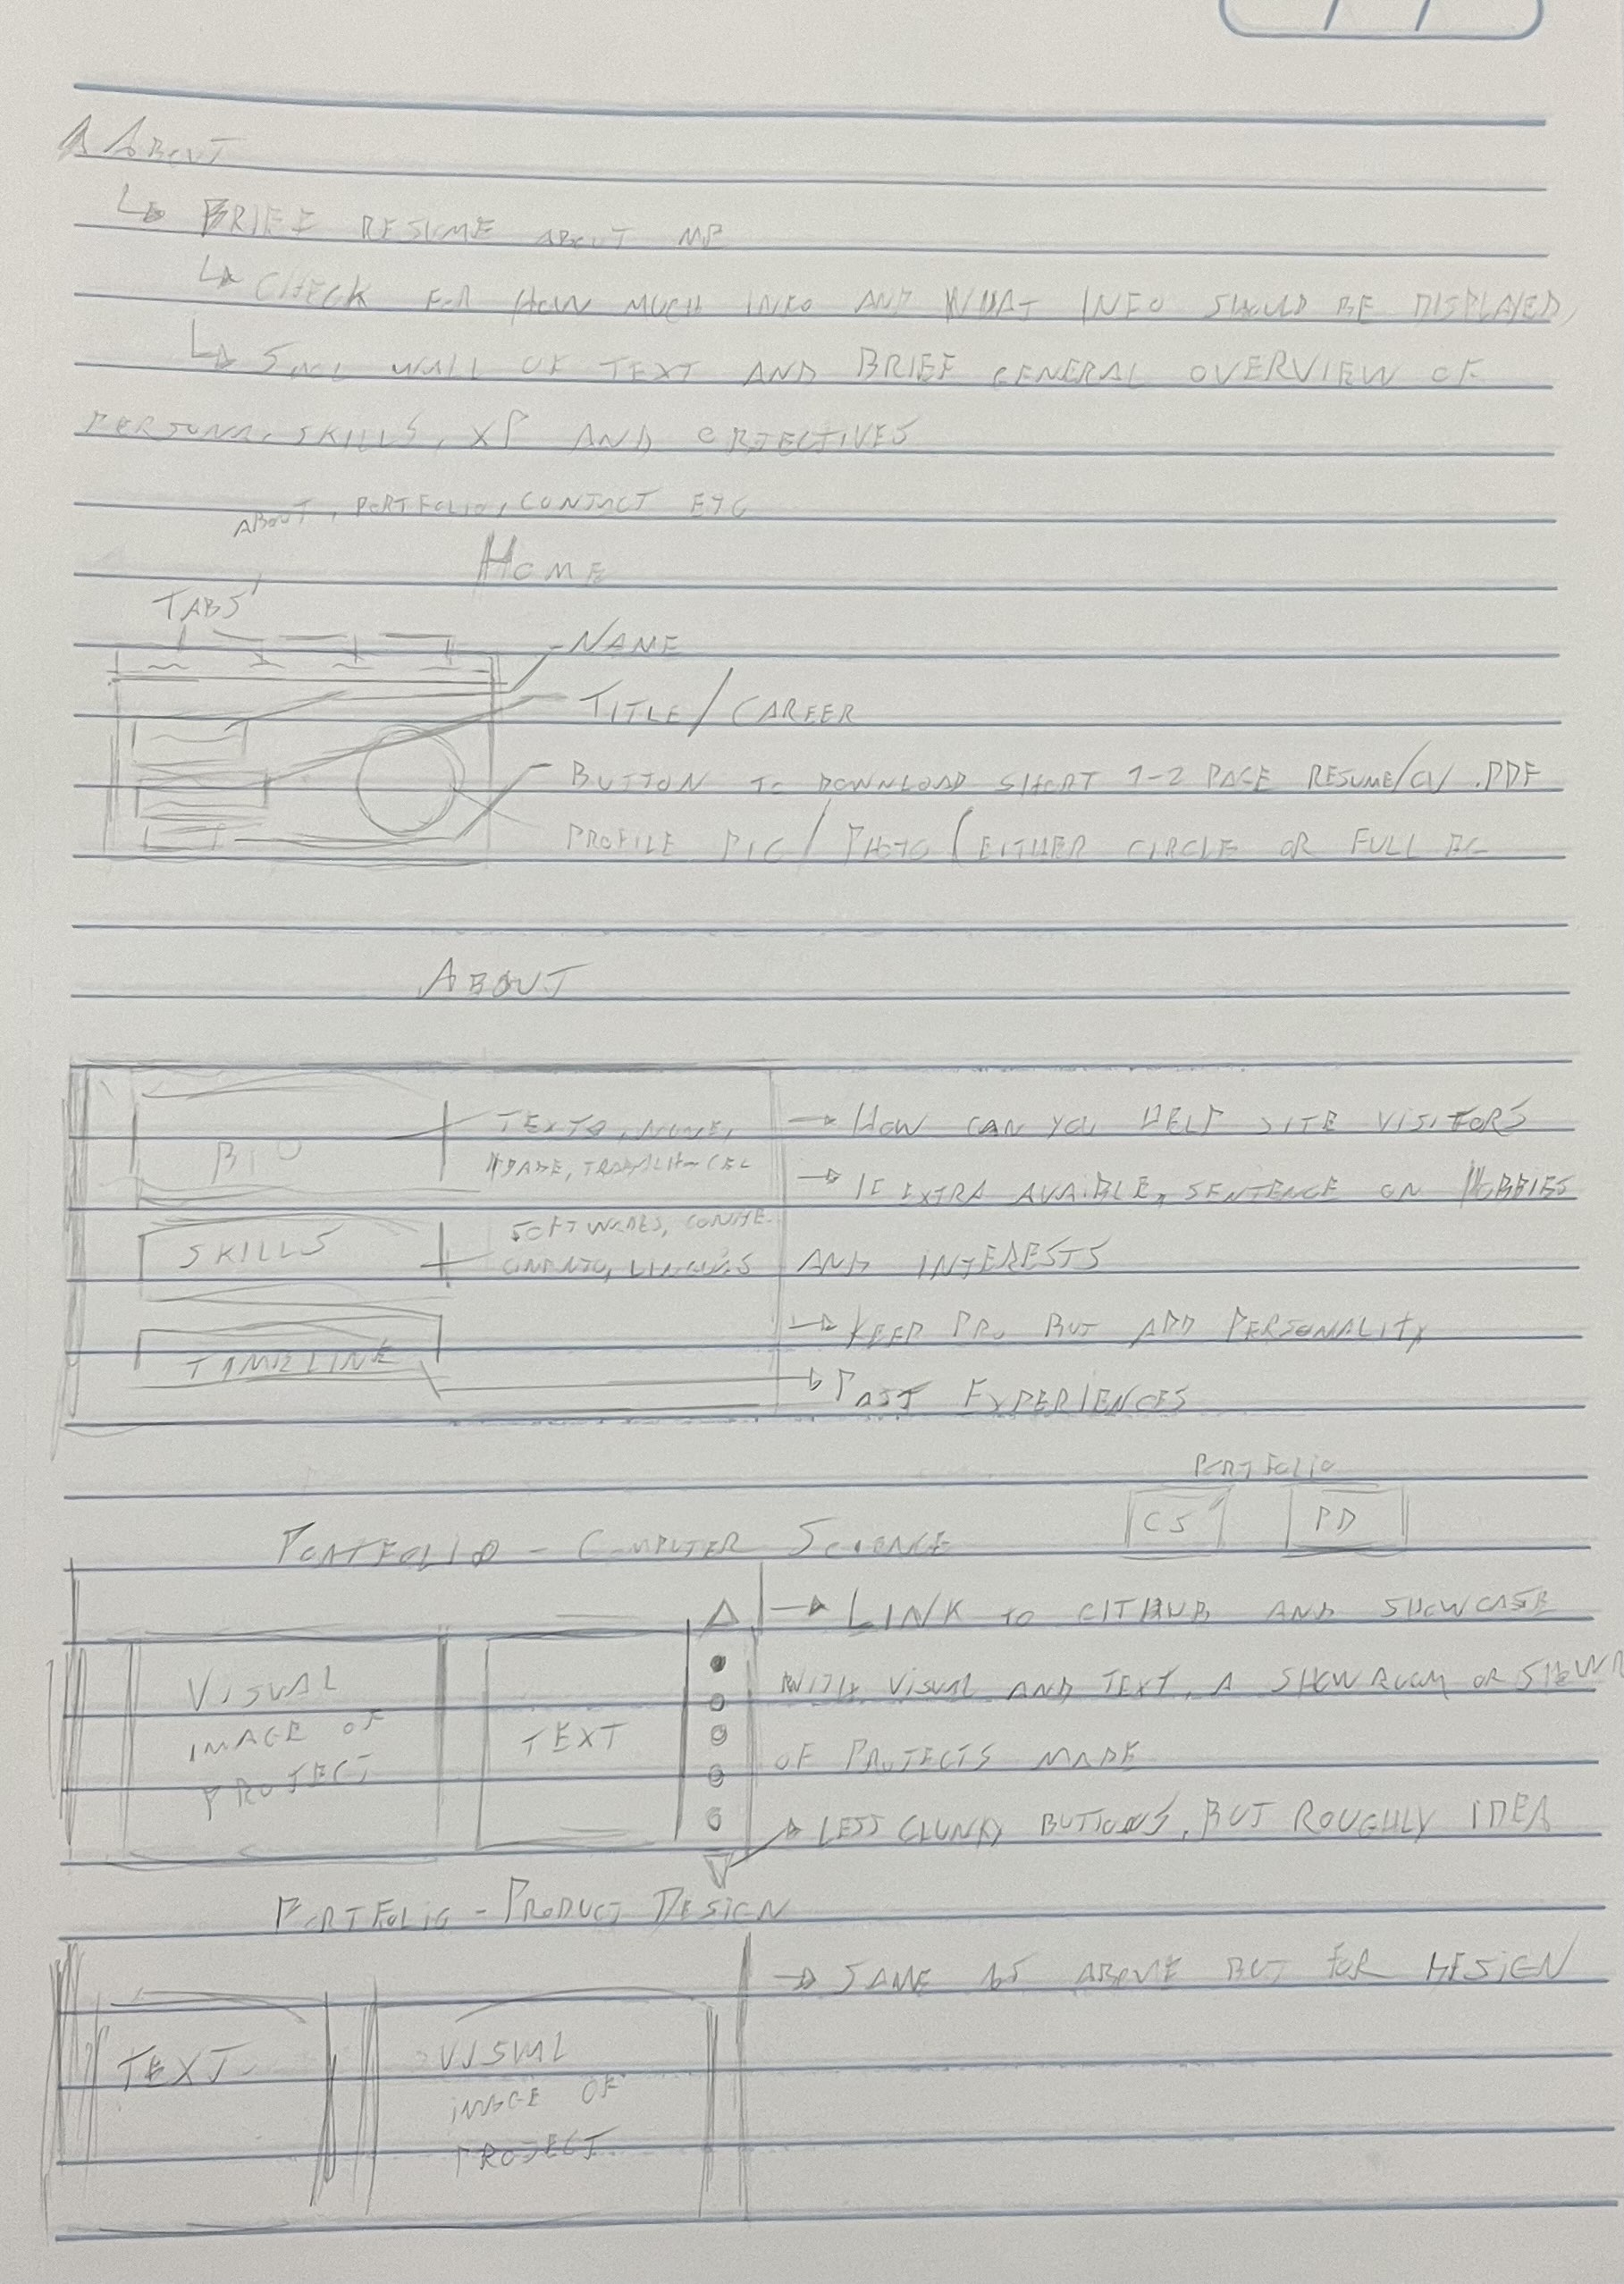 About
BRIEF RESUME ABOUT ME
CHECK FOR HOW MUCH INFO AND WHAT INFO SHOULD BE DISPLAYED,
WALL OF TEXT AND BRIEF GENERAL OVERVIEW OF
SKILLS, XP AND OBJECTIVES
ABOUT, PORTFOLIO, CONTACT ETC
HOME
TABS
NAME
TITLE/CAREER
BUTTON TO DOWNLOAD SHORT 1-2 PAGE RESUME/CV .PDF
PROFILE PIC/PHOTO (EITHER CIRCLE OR FULL BG
ABOUT
BIO
TEXTO, NOME,
SKILLS
SOFTWARES,
TIMELINE
→ HOW CAN YOU HELP SITE VISITORS
→ IF EXTRA AVAIBLE, SENTENCE ON HOBBIES
AND INTERESTS
→ KEEP PRO BUT ADD PERSONALITY
→ PAST EXPERIENCES
PORTFOLIO
CS PD
PORTFOLIO - COMPUTER SCIENCE
VISUAL
IMAGE OF
PROJECT
TEXT
→ LINK TO GITHUB AND SHOWCASE
WITH VISUAL AND TEXT, A SHOWROOM OR
OF PROJECTS MADE
→ LESS CLUNKY BUTTONS, BUT ROUGHLY IDEA
PORTFOLIO - PRODUCT DESIGN
TEXT
VISUAL
IMAGE OF
PROJECT
→ SAME AS ABOVE BUT FOR DESIGN